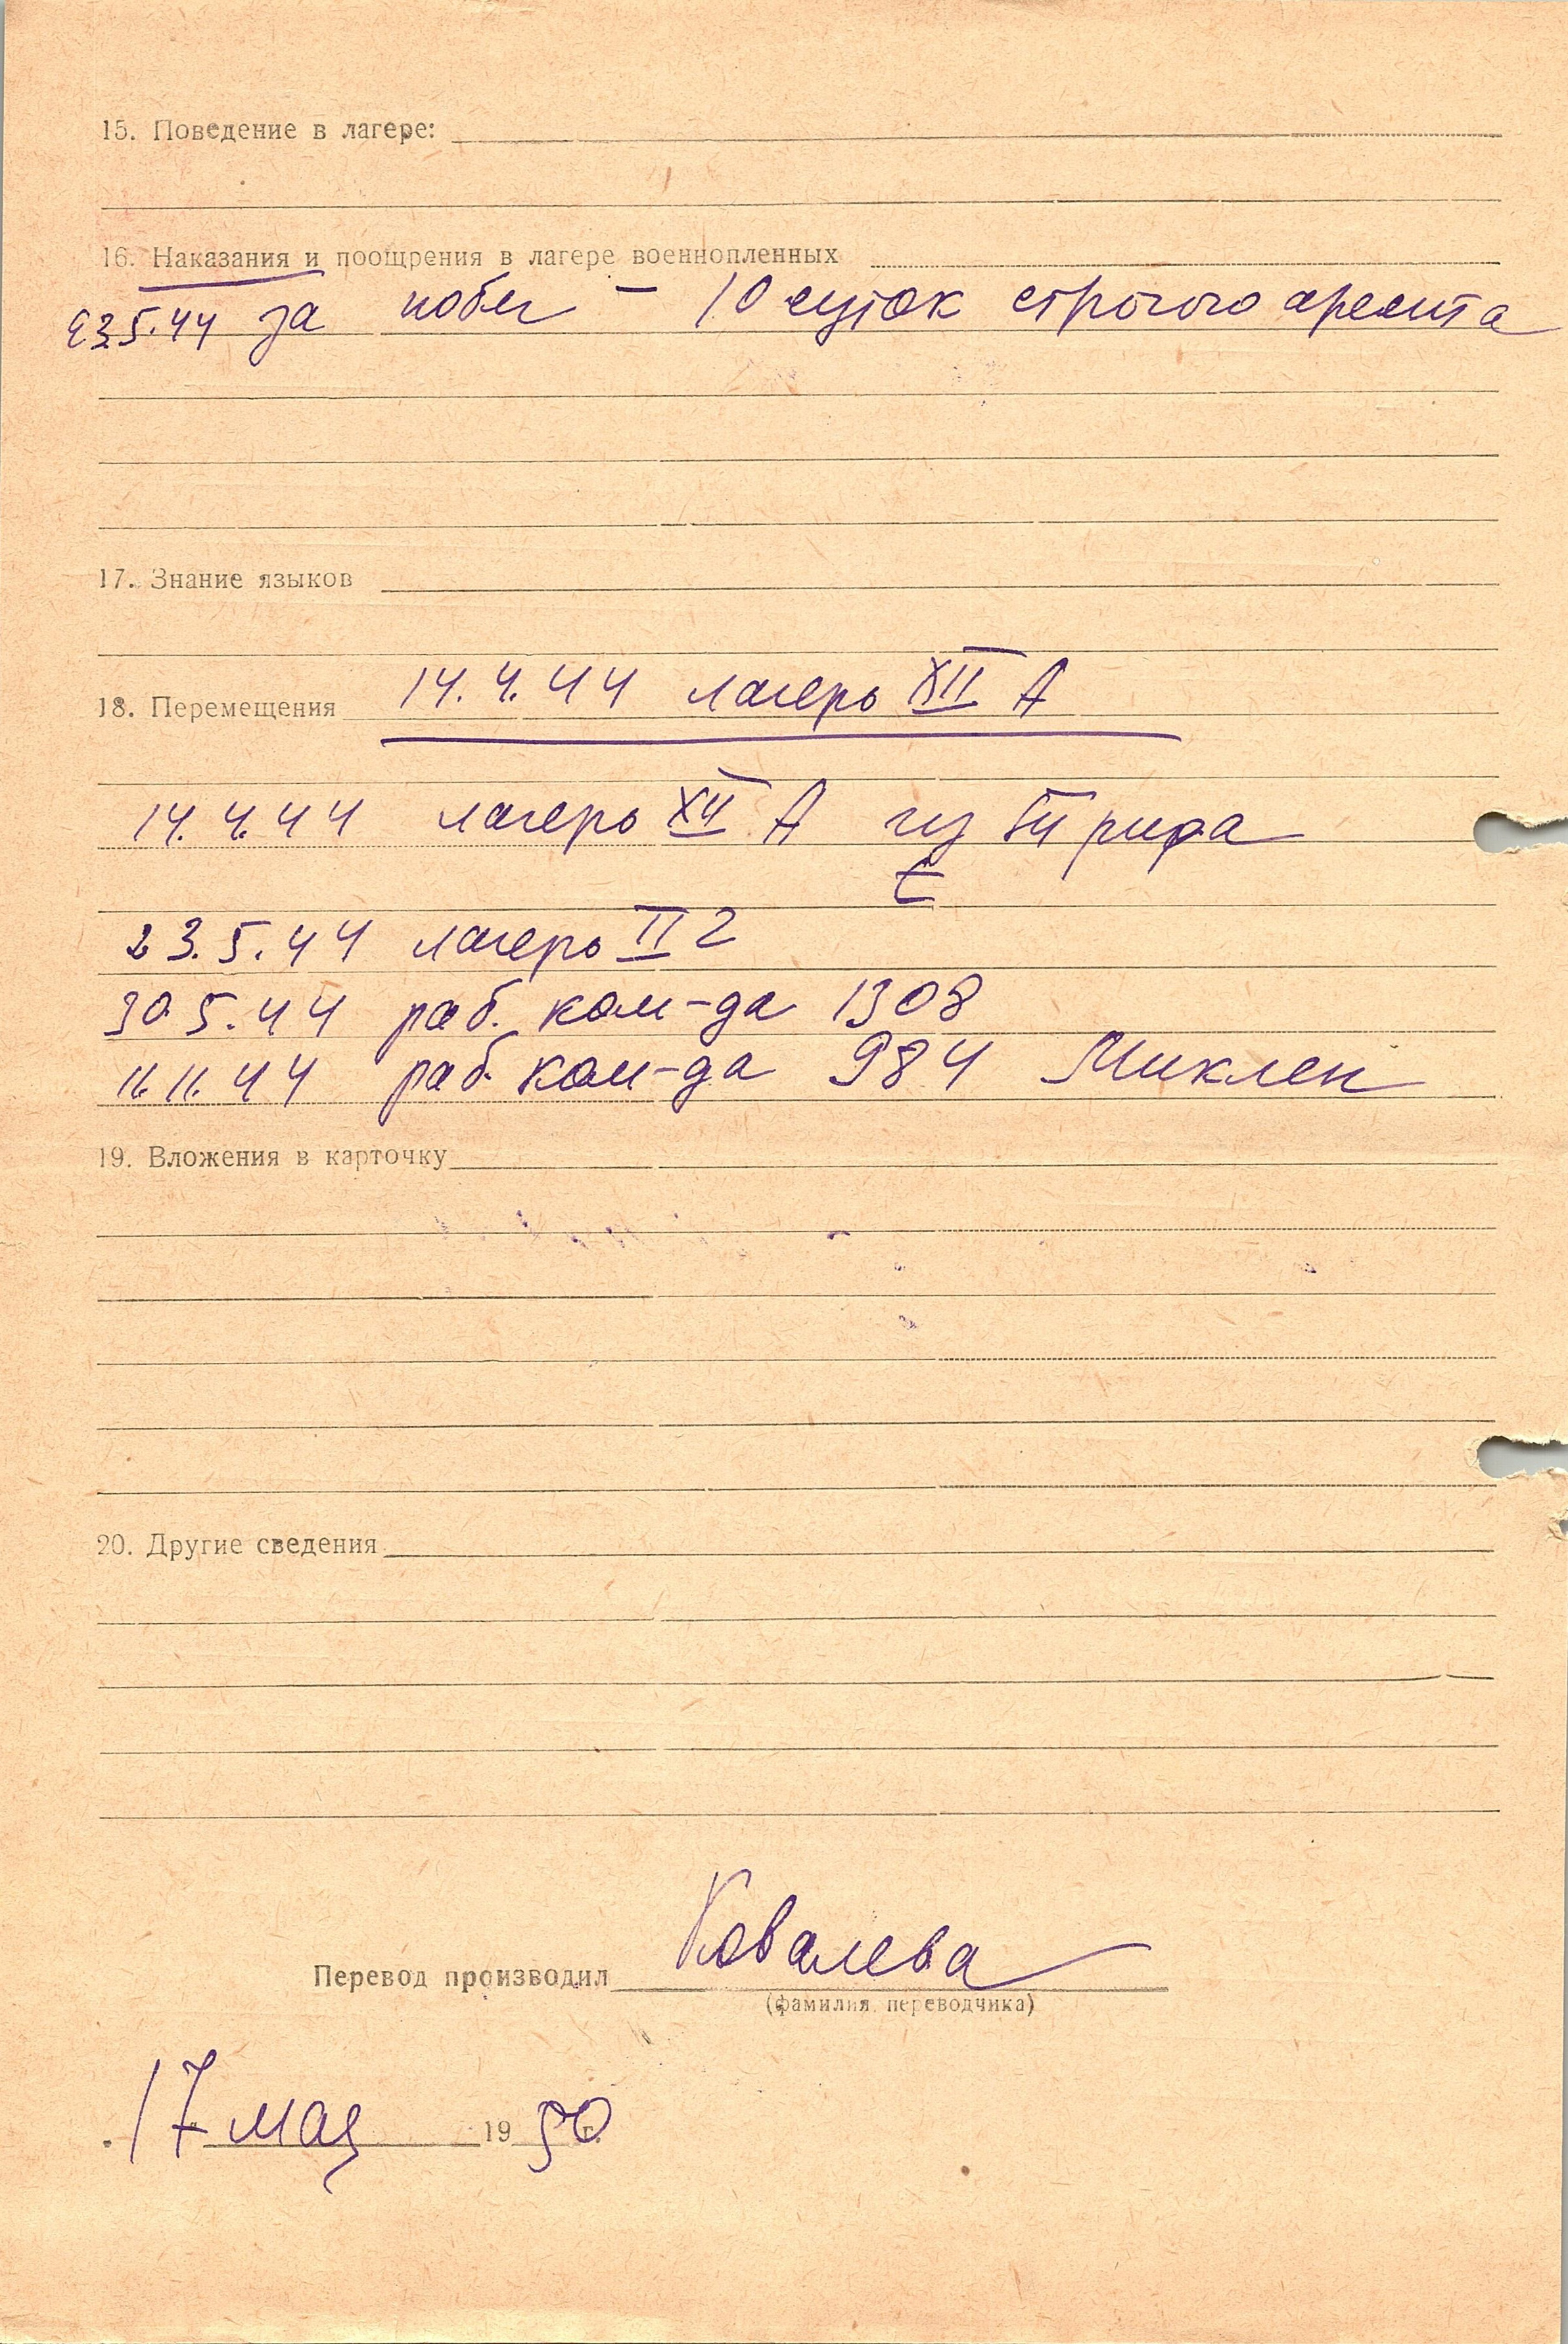 15. Поведение в лагере:
16. Наказания и поощрения в лагере военнопленных
23.5.44 за побег – 10 суток строгого ареста
17. Знание языков
18. Перемещения 14.4.44 лагерь XII А
14.4.44 лагерь XII А из
23.5.44 лагерь II
30.5.44 раб. ком-да 1308
11.11.44 раб. ком-да 984 Миклен
19. Вложения в карточку
20. Другие сведения
Перевод производил Ковалева
(фамилия переводчика)
17 мая 1950 г.